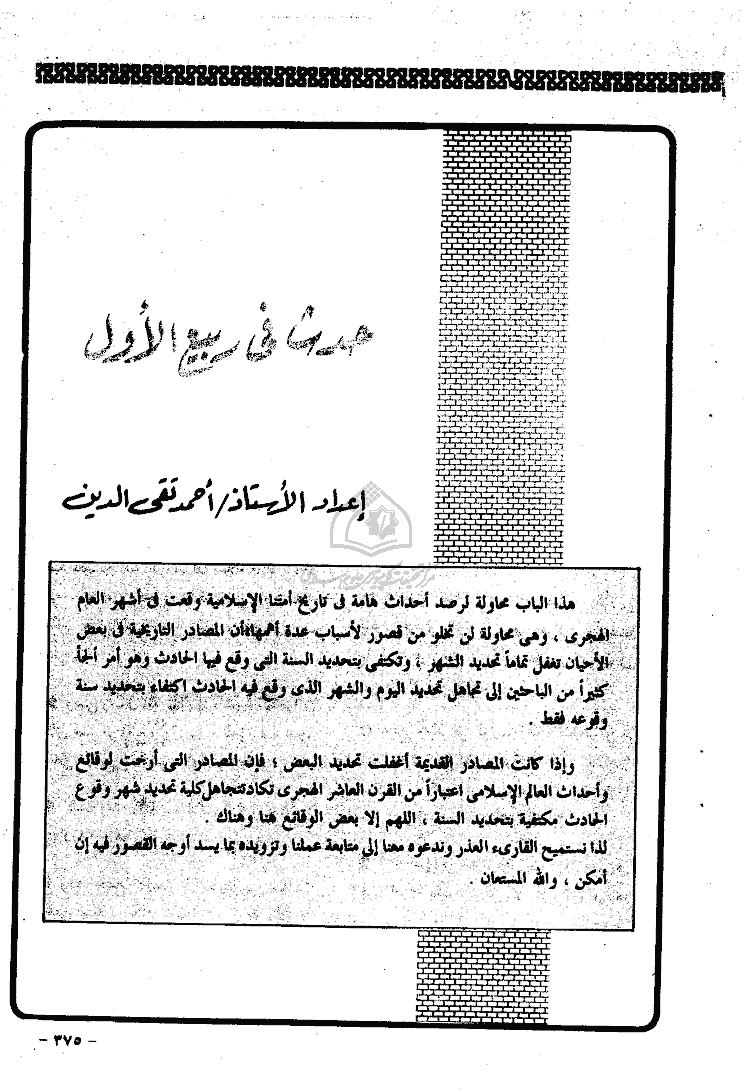 حدث فى ربيع الأول
إعداد الأستاذ/ أحمد تقى الدين
هذا الباب محاولة لرصد أحداث هامة فى تاريخ أمتنا الإسلامية وقعت فى أشهر العام
الهجرى ، وهى محاولة لن تخلو من قصور لأسباب عدة أهمها أن المصادر التاريخية فى بعض
الأحيان تغفل تماماً تحديد الشهر ، وتكتفى بتحديد السنة التى وقع فيها الحادث وهو أمر ألجأ
كثيراً من الباحثين إلى تجاهل تحديد اليوم والشهر الذى وقع فيه الحادث اكتفاء بتحديد سنة
وقوعه فقط .
وإذا كانت المصادر القديمة أغفلت تحديد البعض ؛ فإن المصادر التى أرخت لوقائع
وأحداث العالم الإسلامى اعتباراً من القرن العاشر الهجرى تكاد تتجاهل كلية تحديد شهر وقوع
الحادث مكتفية بتحديد السنة ، اللهم إلا بعض الوقائع هنا وهناك .
لذا نستميح القارىء العذر وندعوه معنا إلى متابعة عملنا وتزويده بما يسد أوجه القصور فيه إن
أمكن ، والله المستعان .
- ٣٧٥ -